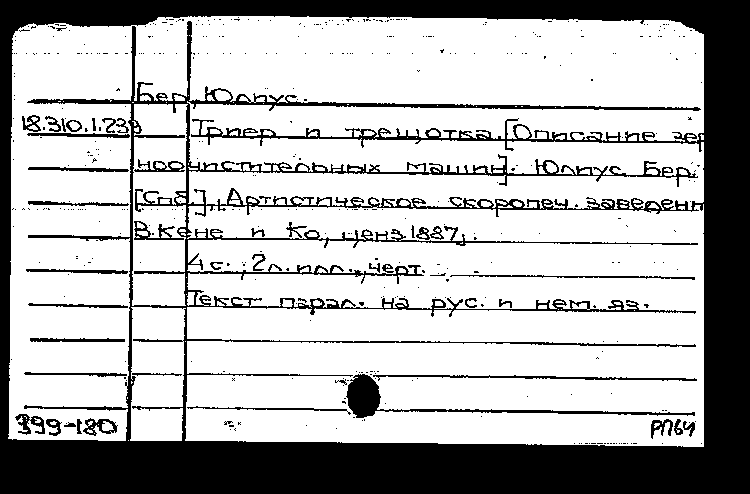 Бер, Юлиус.
18.310.1.239 Триер и трещотка. [Описание зер
ноочистительных машин]. Юлиус Бер.
[Спб], Артистическое скоропеч. заведени
В. Кене и Ко, ценз. 1887.
4 с., 2 л. илл., черт.
Текст парал. на рус. и нем. яз.
399-180
РП64